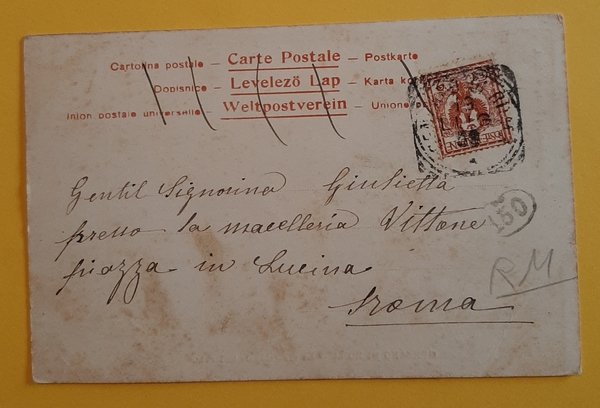 Cartolina postale – Carte Postale – Postkarte
Dopisnice – Levelező Lap – Karta
Union postale universelle – Weltpostverein – Unione
Gentil Signorina Giulietta
presso la macelleria Vittone
piazza in Lucina
Roma
R.M.